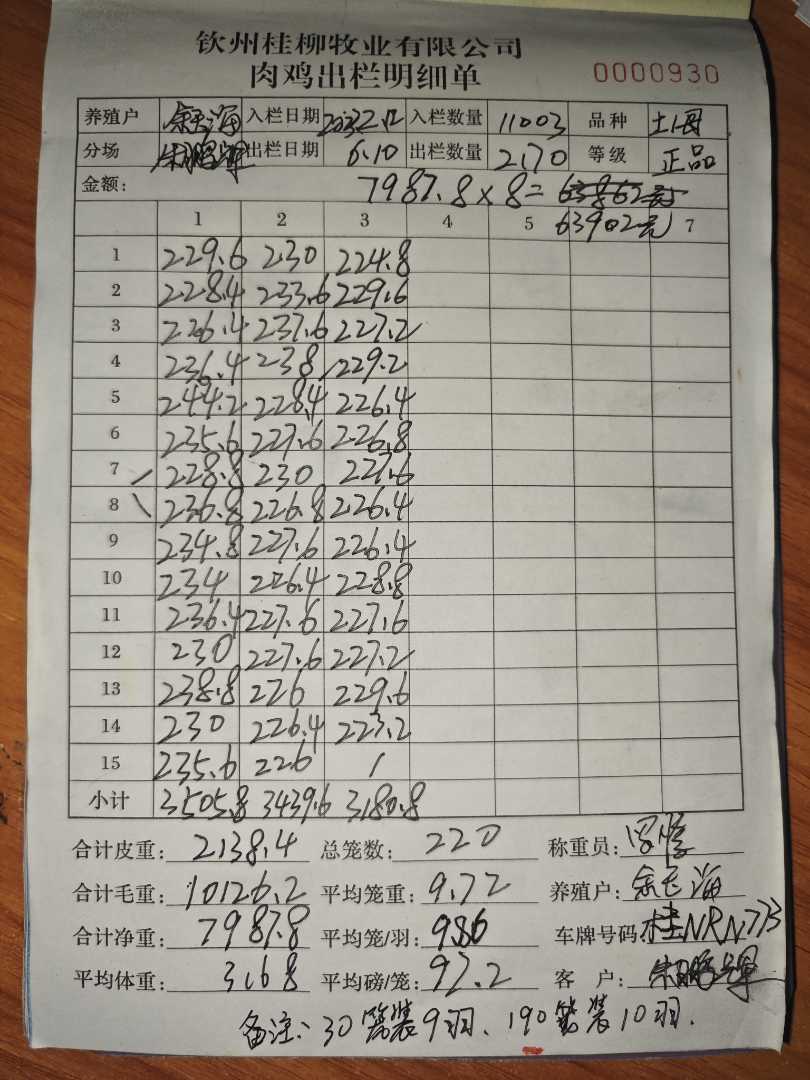 钦州桂柳牧业有限公司
肉鸡出栏明细单 0000930
养殖户 入栏日期 入栏数量 11003 品种
分场 出栏日期 6.10 出栏数量 2170 等级 正品
金额: 7987.8×8= 63862元
63902元
1 2 3 4 5 7
1 229.6 230 224.8
2 228.4 233.6 229.6
3 226.4 237.6 227.2
4 236.4 238 229.2
5 244.2 228.4 226.4
6 235.6 227.6 226.8
7 228.8 230 227.6
8 236.8 226.8 226.4
9 234.8 227.6 226.4
10 234 226.4 228.8
11 236.4 227.6 227.6
12 230 227.6 227.2
13 238.8 226 229.6
14 230 226.4 223.2
15 235.6 226 /
小计 3505.8 3439.6 3180.8
合计皮重: 2138.4 总笼数: 220 称重员:
合计毛重: 10126.2 平均笼重: 9.72 养殖户:
合计净重: 7987.8 平均笼/羽: 9.86 车牌号码: 桂NRN773
平均体重: 3.68 平均磅/笼: 92.2 客 户:
备注: 30笼装9羽、190笼装10羽.